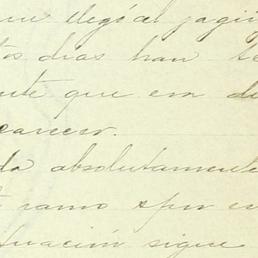 llegó al jagü
os dias han te
nte que era de
carecer.
da absolutamente
ramo spor en
tuación sigue